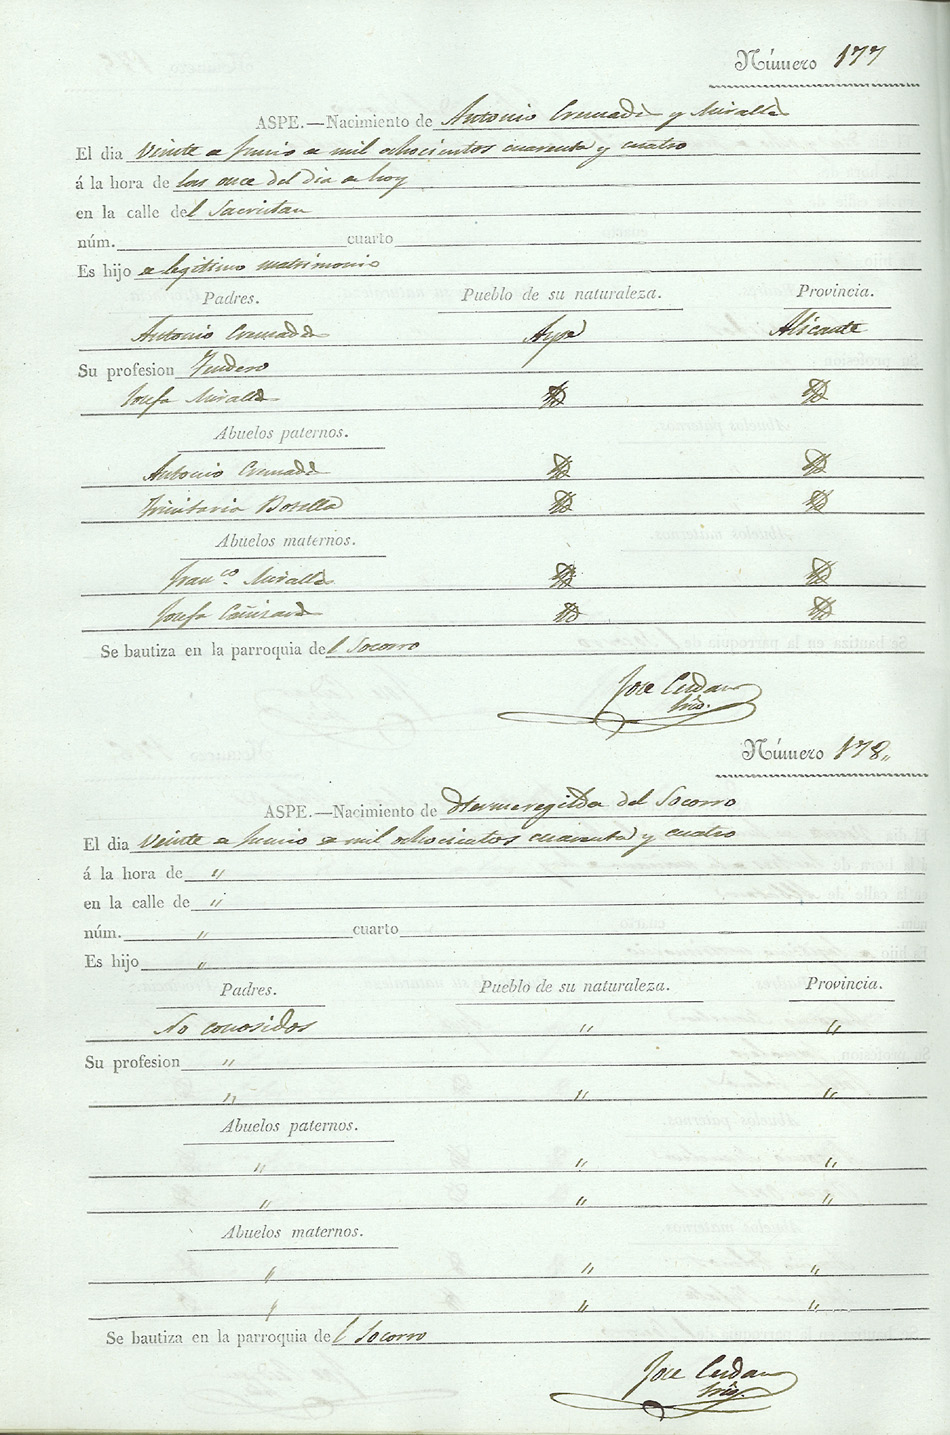 Número 177
ASPE.—Nacimiento de Antonio Cremades y Miralles
El dia veinte de Junio de mil ochocientos cuarenta y cuatro
á la hora de las once del dia de hoy
en la calle del Sacristan
núm. cuarto
Es hijo de legitimo matrimonio
Padres. Pueblo de su naturaleza. Provincia.
Antonio Cremades Aspe Alicante
Su profesion Tendero
Josefa Miralles
Abuelos paternos.
Antonio Cremades
Trinitaria Botella
Abuelos maternos.
Franco. Miralles
Josefa
Se bautiza en la parroquia del Socorro
Jose Cerdan
Número 178„
ASPE.—Nacimiento de Hermeregilda del Socorro
El dia veinte de Junio de mil ochocientos cuarenta y cuatro
á la hora de „
en la calle de „
núm. „ cuarto
Es hijo „
Padres. Pueblo de su naturaleza. Provincia.
No conosidos „ „
Su profesion „
„ „ „
Abuelos paternos.
„ „ „
„ „ „
Abuelos maternos.
„ „ „
„ „ „
Se bautiza en la parroquia del Socorro
Jose Cerdan